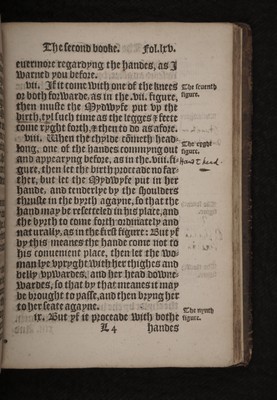 The second booke. Fol.lxv.
euermore regardyng the handes, as I
warned you before.
vii. If it come with one of the knees
or both forwarde, as in the .vii. figure,
then muste the Mydwyfe put vp the
birth, tyl such time as the legges & feete
come ryght forth, & then to do as afore.
The seuenth
figure.
viii. When the chylde cōmeth head-
long, one of the handes commyng out
and appearyng before, as in the .viii. fi-
gure, then let the birth proceade no far-
ther, but let the Mydwyfe put in her
hande, and tenderlye by the shoulders
thruste in the byrth agayne, so that the
hand may be resetteled in his place, and
the byrth to come forth ordinately and
naturally, as in the first figure: But yf
by this meanes the hande come not to
his conuenient place, then let the wo-
man lye vpryght with her thighes and
belly vpwardes, and her head downe-
wardes, so that by that meanes it may
be brought to passe, and then bryng her
to her seate agayne.
The eyght
figure.
Hand & head
ix. But yf it proceade with bothe
The nynth
figure.
L 4 handes